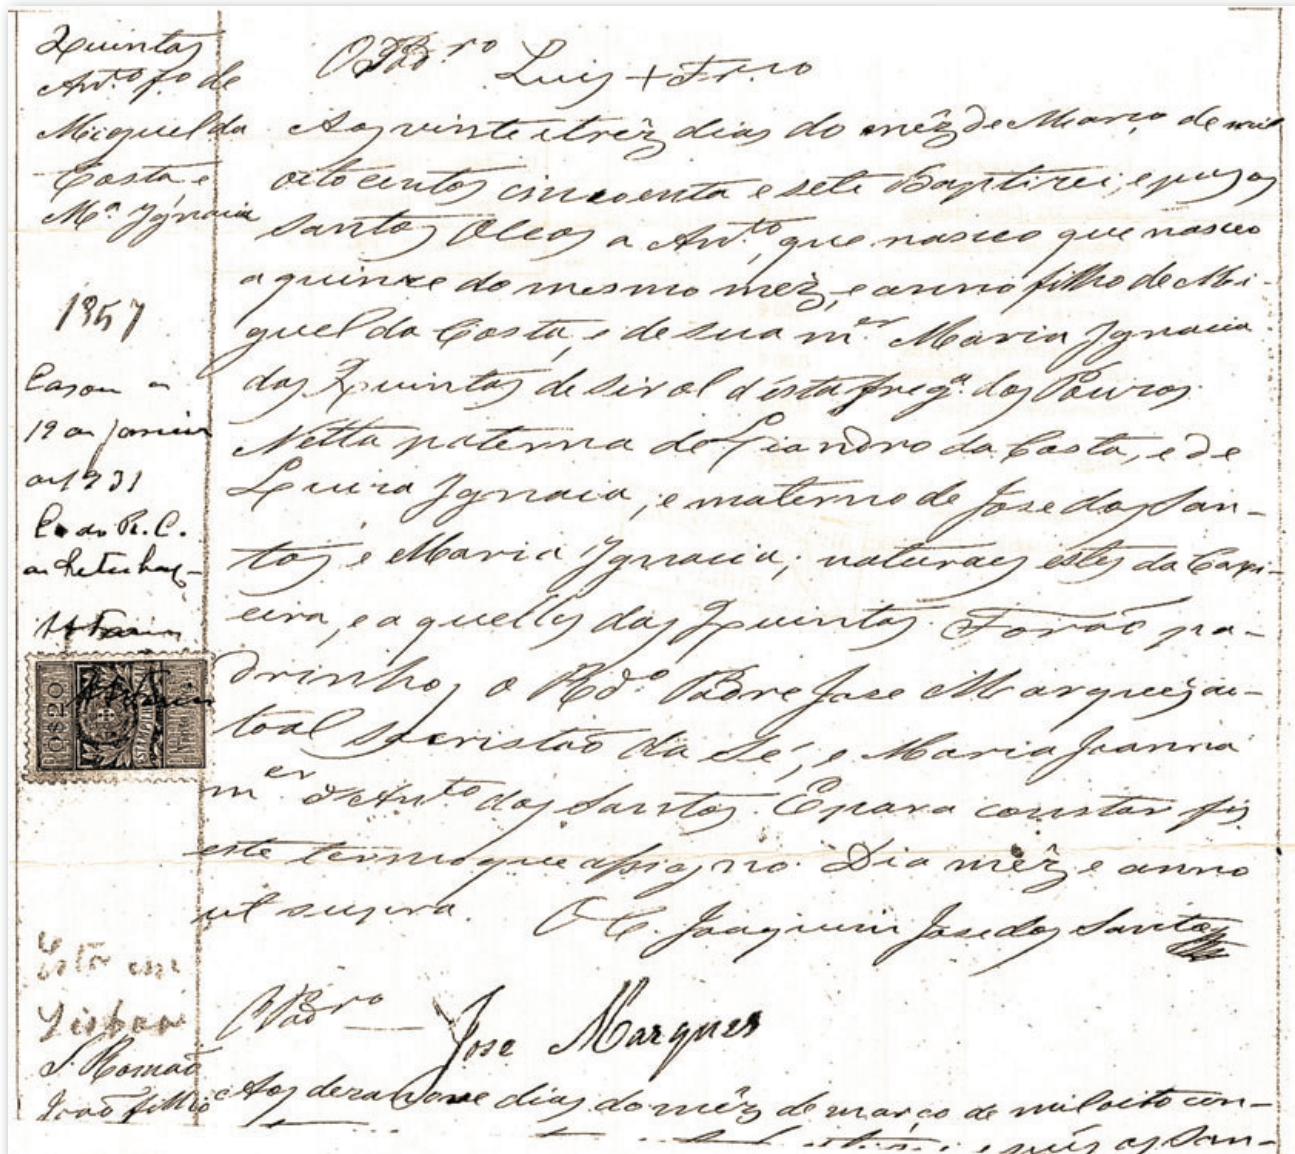 Quintas
Ant.º f.º de
Miguel da
Costa e
M.ª Ignacia
1857
Casou a
19 de Janeiro
de 1931
C. do R. C.
de Setubal
Está em
Lisboa
S. Romão
João filho
O Pad.ro Luis + Fr.co
Aos vinte e trêz dias do mêz de Março de mil
oito centos cincoenta e sete Baptizei, e puz os
Santos Oleos a Ant.to, que nasceo que nasceo
a quinze do mesmo mêz, e anno filho de Mi-
guel da Costa, e de sua m.er Maria Ignacia
das Quintas de Sirol d'esta freg.ª dos Pouzos.
Netto paterno de Liandro da Costa, e de
Luiza Ignacia, e materno de Jose dos San-
tos, e Maria Ignacia, naturaes estes da Caxi-
eira, e aquelles das Quintas. Forão pa-
drinhos o Rd.º Padre Jose Marques, ac-
toal Sacristão da Sé, e Maria Joanna
m.er d'Ant.to dos Santos. E para constar fiz
este termo que assigno. Dia mêz e anno
ut supra. O C. Joaquim Jose dos Santos
O Pad.ro Jose Marques
Aos dezanove dias do mêz de março de mil oito cen-
e puz os San-